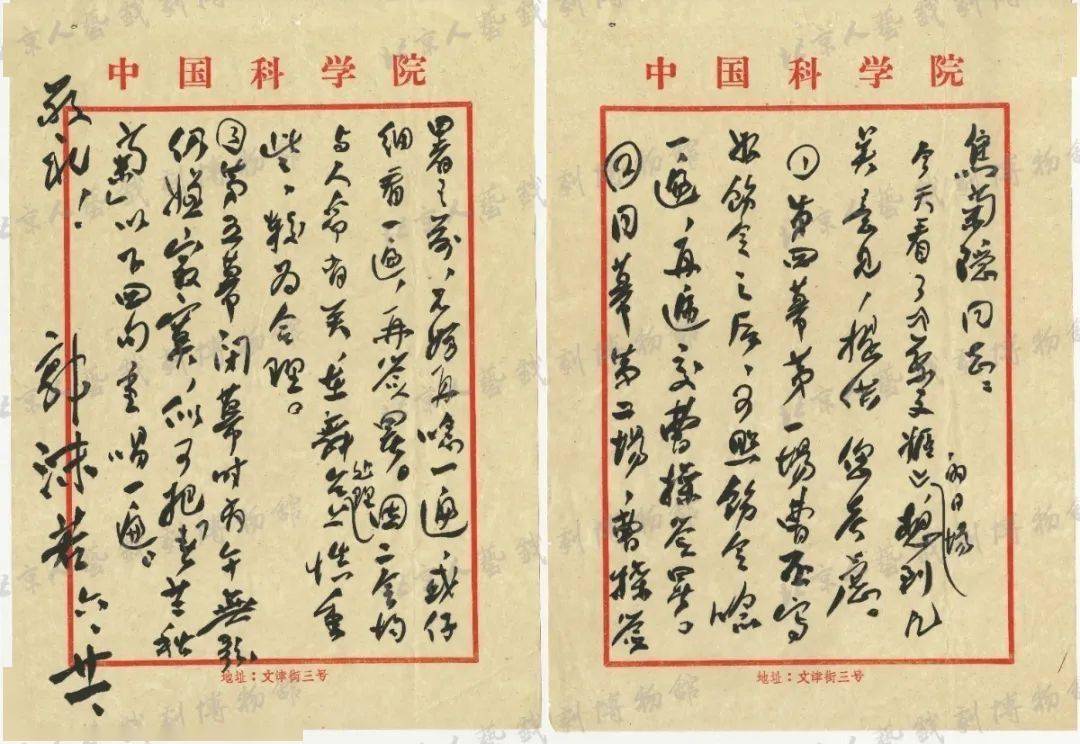 中国科学院
焦菊隐同志：
今天看了《蔡文姬》的日场，想到几
点意见，提供您考虑。
①第四幕第一场曹丕写
好饬令之后，可照饬令念
一遍，再递交曹操签署。
②同幕第二场，曹操签
地址：文津街三号
中国科学院
署之前，不妨再念一遍，或仔
细看一遍，再签署。因二令均
与人命有关，在舞台上处理慎重
些，较为合理。
③第五幕闭幕时 無歌
仍嫌寂寞，似可把“春兰秋
菊”以下四句重唱一遍。
敬礼！
郭沫若 六、廿一、
地址：文津街三号
北京人藝戲劇博物館